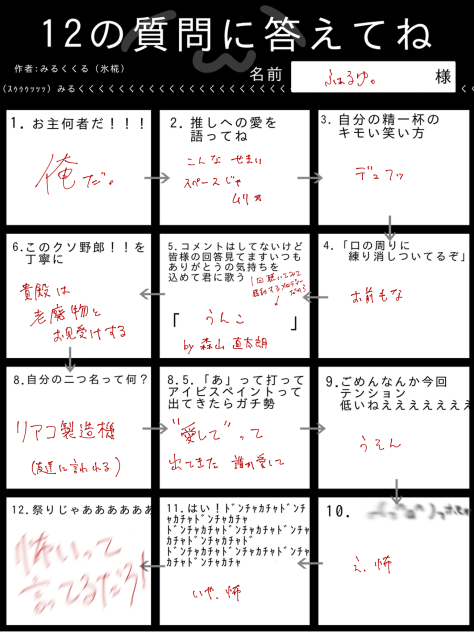 12の質問に答えてね
作者:みるくくる(氷椛)
名前 ふはるゆ。 様
(ｽｩｩｩｩｯｯｯ) みるくくくくくくくくくくくくくくくくくくくくくくくくくくくくくくく
1. お主何者だ!!!
俺だ。
2. 推しへの愛を
語ってね
こんな せまい
スペースじゃ
ムリ
3. 自分の精一杯の
キモい笑い方
デュフッ
6.このクソ野郎!!を
丁寧に
貴殿は
老廃物と
お見受けする
5.コメントはしてないけど
皆様の回答見てますいつも
ありがとうの気持ちを
込めて君に歌う
1回聴いてみて
「うんこ」
by 森山 直太朗
4.「口の周りに
練り消しついてるぞ」
お前もな
8.自分の二つ名って何?
リアコ製造機
(友達に言われる)
8.5.「あ」って打って
アイビスペイントって
出てきたらガチ勢
"愛して"って
出てきた 誰か愛して
9.ごめんなんか今回
テンション
低いねえええええええ
うそん
12.祭りじゃああああああ
怖いって
言ってるだろ!
11.はい!ﾄﾞﾝﾁｬｶﾁｬﾄﾞﾝﾁ
ｬｶﾁｬﾄﾞﾝﾁｬｶﾁｬ
ﾄﾞﾝﾁｬｶﾁｬﾄﾞﾝﾁｬｶﾁｬﾄﾞﾝﾁｬ
ｶﾁｬﾄﾞﾝﾁｬｶﾁｬﾄﾞ
ﾄﾞﾝﾁｬｶﾁｬﾄﾞﾝﾁｬｶﾁｬﾄﾞﾝﾁｬ
ｶﾁｬﾄﾞﾝﾁｬｶﾁｬ
いや、怖
10.
え、怖